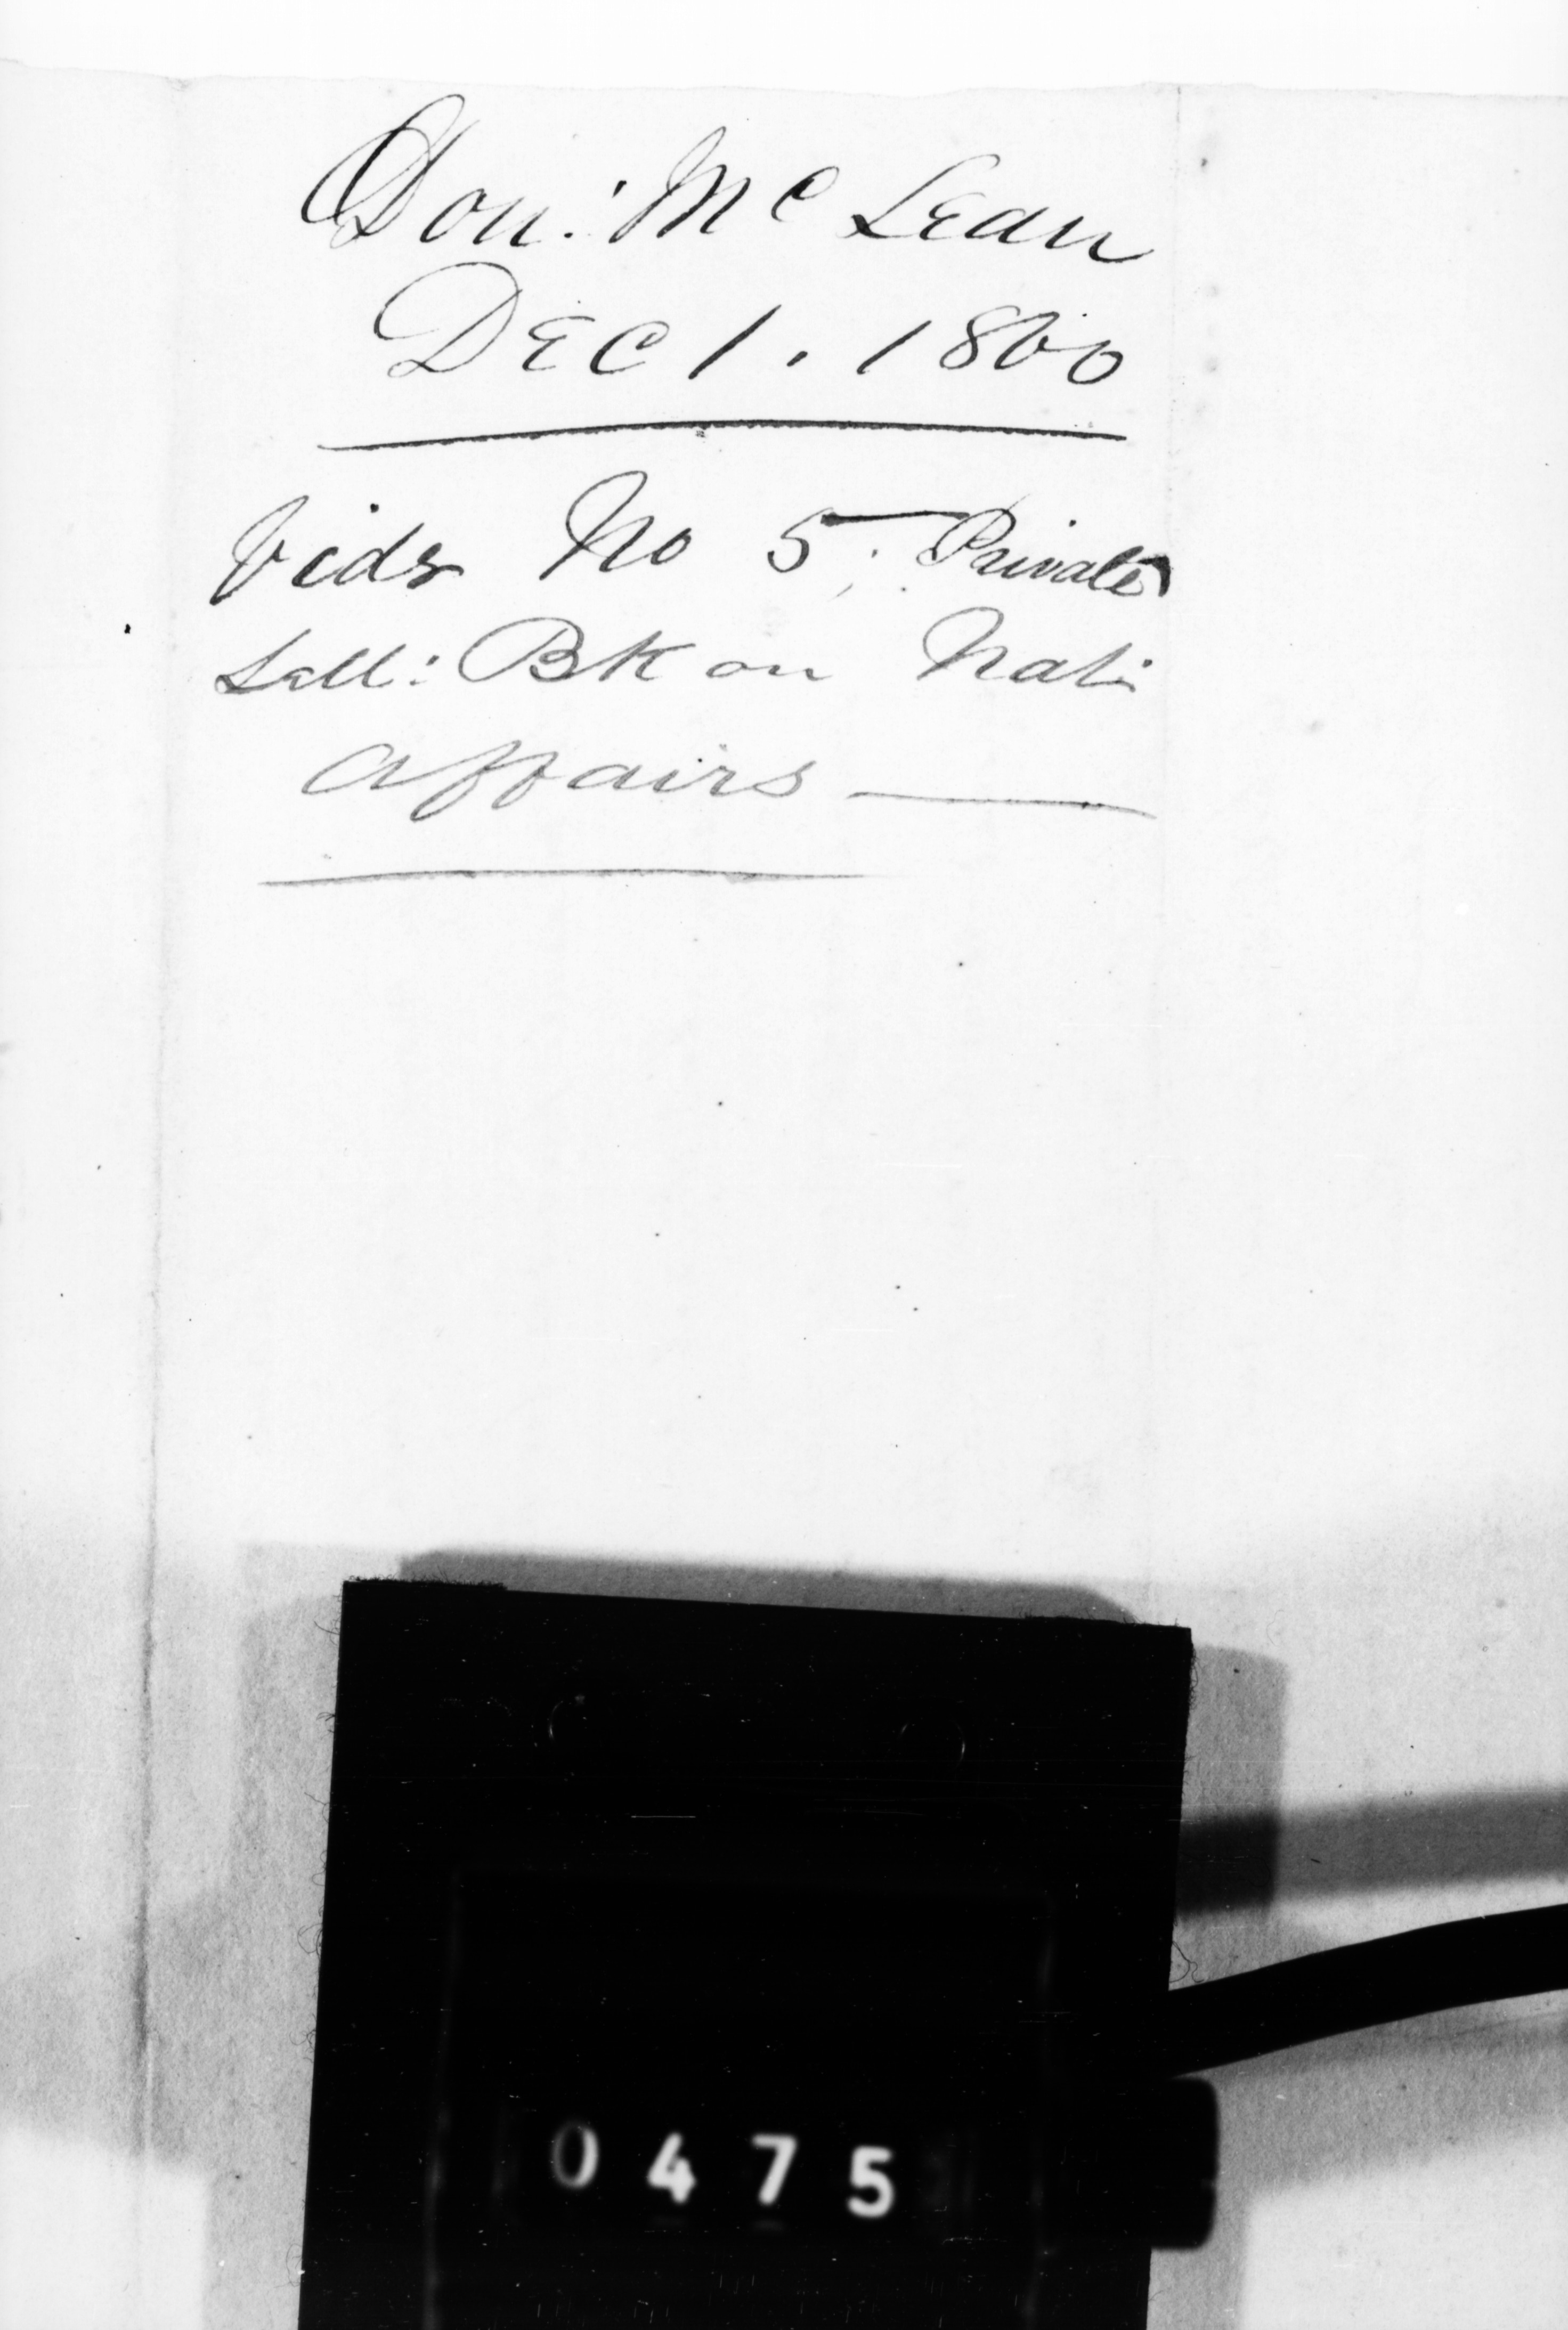 Don: Mc Lean
DEC 1. 1860
Vide No 5. Private
Lett: BK on Nati
affairs —
0475